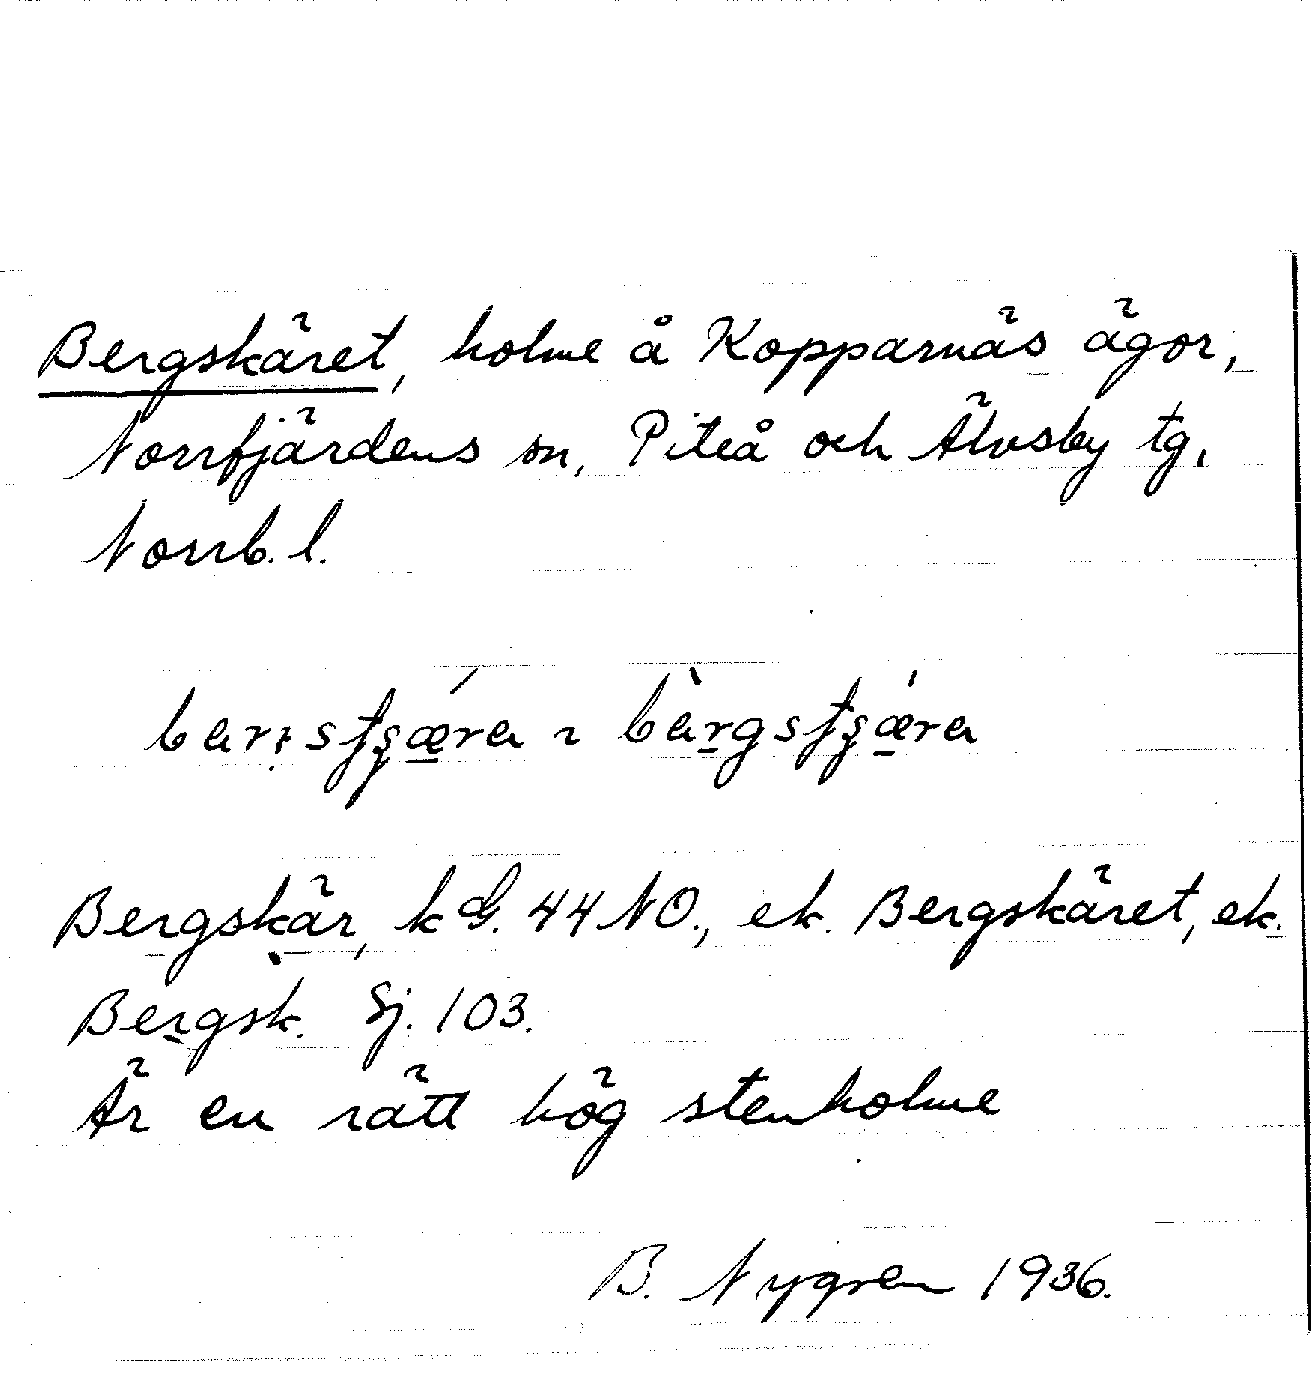 Bergskäret, holme å Kopparnäs ägor,
Norrfjärdens sn, Piteå och Älvsby tg,
Norrb. l.
Bergskär, k G. 44 NO., ek. Bergskäret, ek.
Bergsk. Sj. 103.
Är en rätt hög stenholme
B. Nygren 1936.